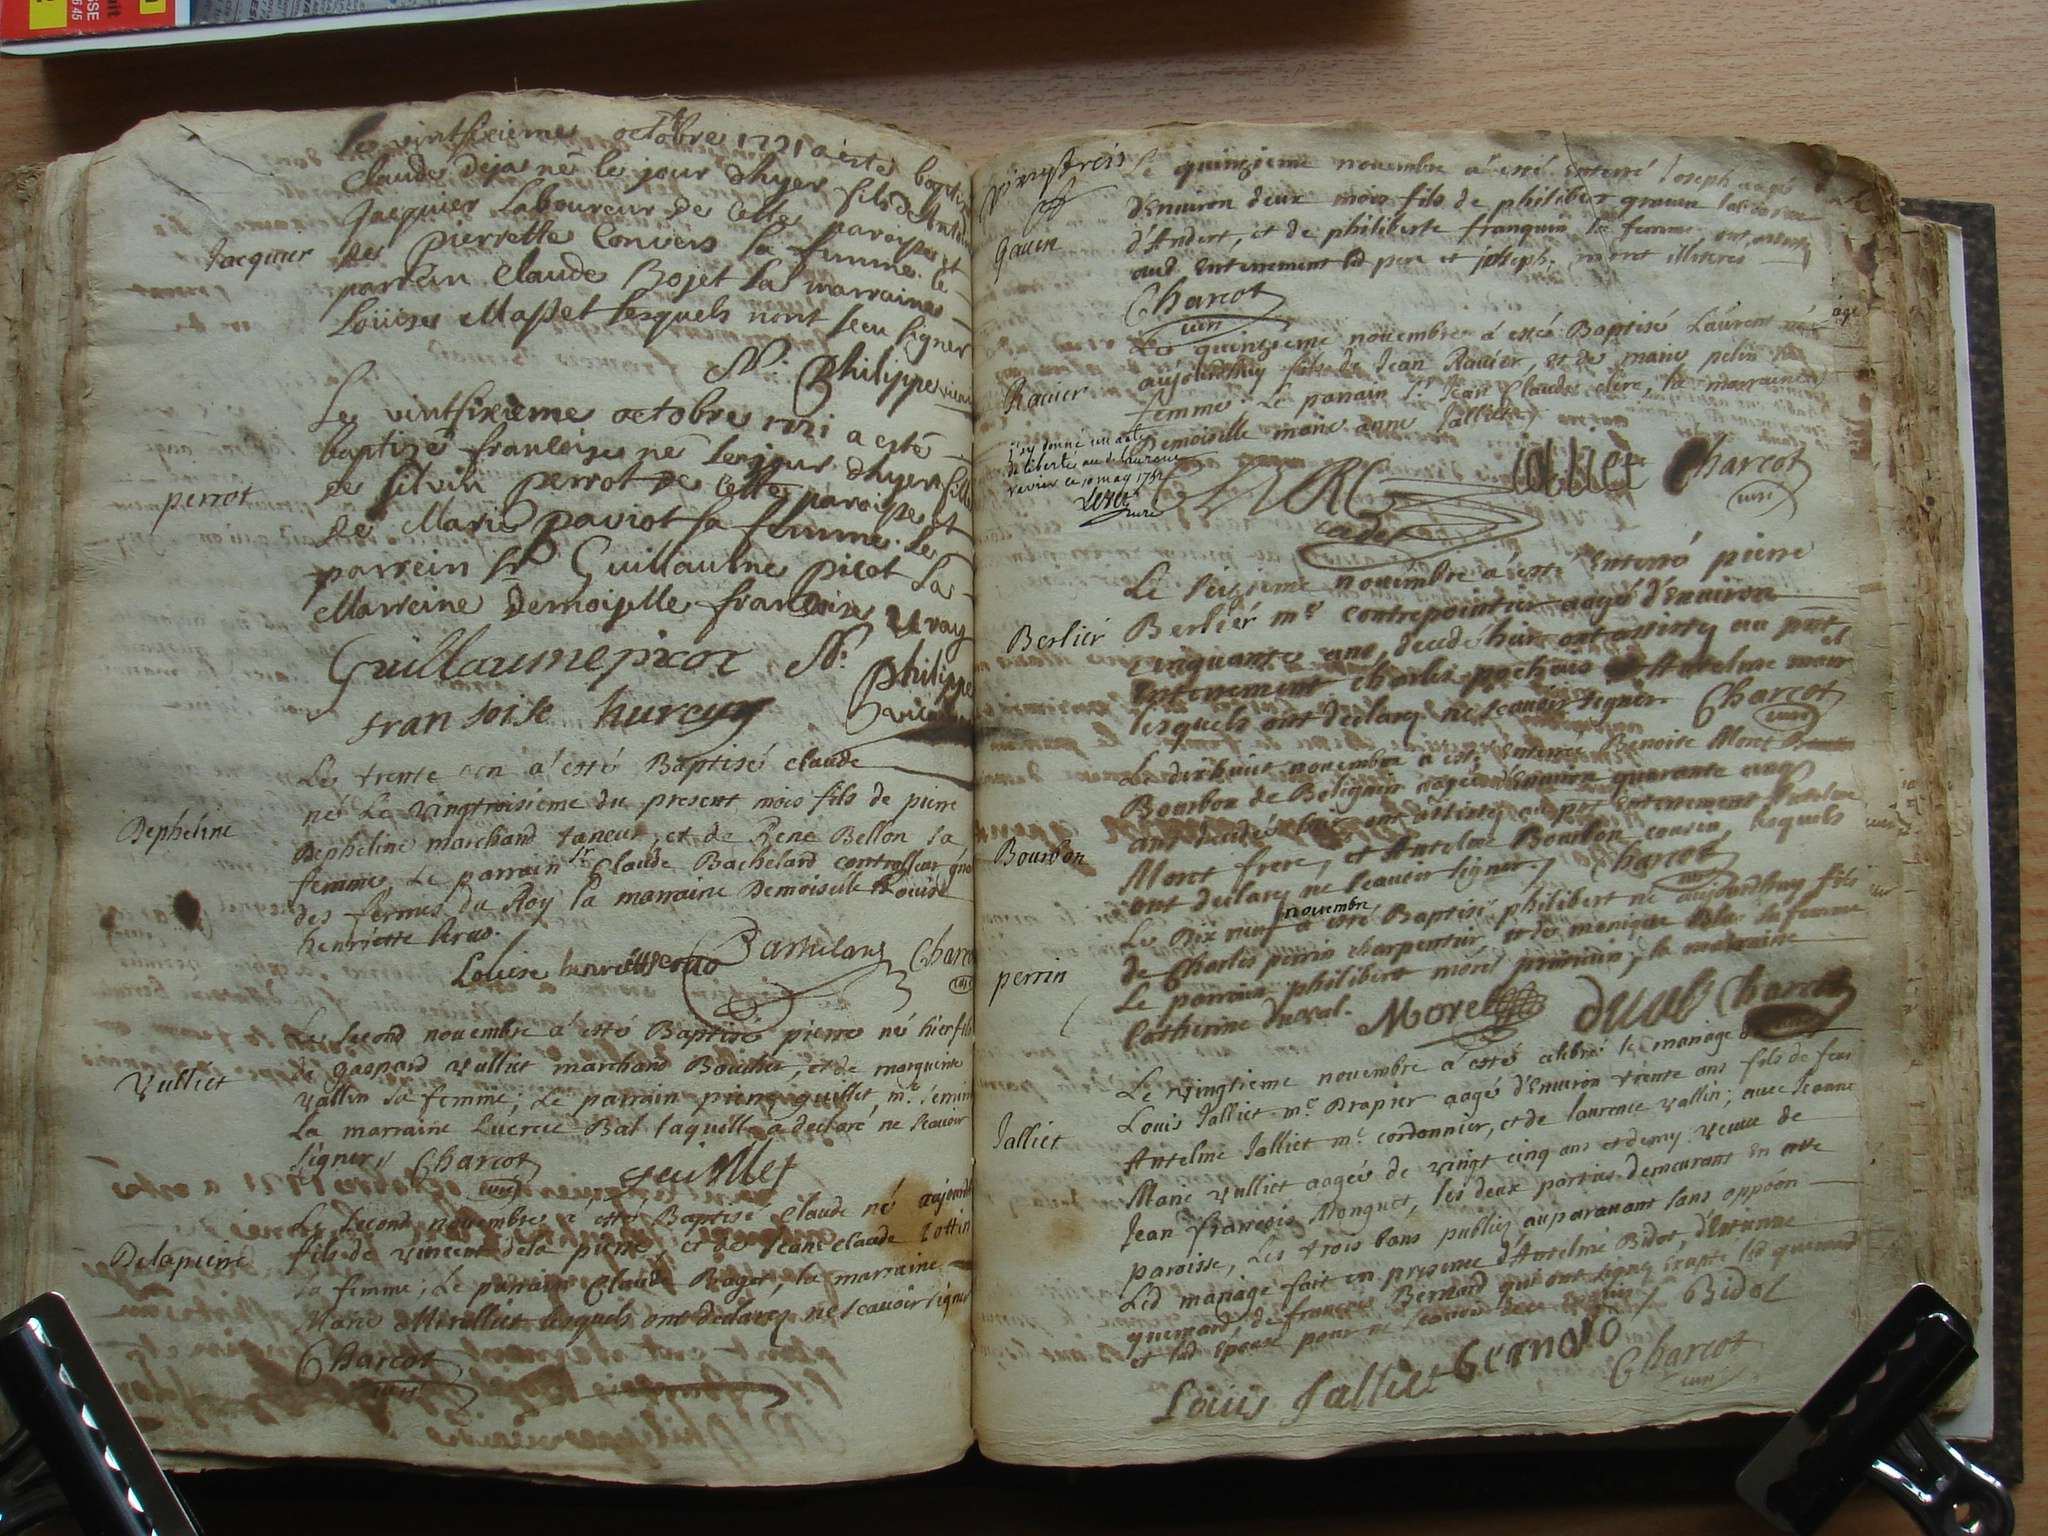 Le vintsixieme octobre 1721 a esté bapt
Claude Deja né le jour dhyer fils de Antoi
Jacquier Laboureur de cette paroisse et
Jacquier
de pierrette Convers sa femme le
parrein Claude Bojet la marraine
Loüise Masset lesquels nont sceu signer
Philippe vicai
Le vintsixieme octobre 1721 a esté
baptizé francoise né le jour dhyer fille
de silvin perrot de cette paroisse et
perrot
de Marie paviot sa femme. Le
parrein Sr Guillaulme picot La
Marreine Demoiselle francoise
Guillaumepicot
Philippe
fransoise hureyy
vicai
Le trente un a'esté Baptisé claude
né Le vingtroisieme du present mois fils de pierre
Depheline
Depheline marchand taneur, et de Rene Bellon sa
femme, Le parrain Sr Claude Bachelard controlleur gnal
des fermes du Roy la marraine Demoiselle Louise
henriette
Louise henriette Charco
Le second novembre a'esté Baptisé pierre né hier fils
de gaspard Vulliet marchand Boucher, et de marguerite
Vulliet
Vallin sa femme; Le parrain pierre guillet,
La marraine Lucrece Bal laquelle a declaré ne scavoir
signer Charcot guillet
curé
Le second novembre a esté Baptisé Claude né aujourdh
fils de vincent dela pierre, et de Jeane claude Tottin
Delapierre
sa femme; Le parrain Claude Roget, la marraine
Marie Mirelliet lesquels ont declarez ne scavoir signer
Charcot
curé
vingtrois
Le quinzieme novembre a'esté enterré Joseph aagé
d'Environ deux mois fils de philibert
gauin
d'Andert, et de philiberte franquin sa femme ont assistez
aud. Enterrement led pere et joseph illiteres
Charcot
curé
Le quinzieme novembre a estéé Baptisé Laurent né
aujourdhuy fils de Jean Ravier, et de marie pelin sa
Ravier
femme. Le parrain Sr Jean Claude clerc, la marraine
Demoiselle marie anne Jalliet
J'ay donné un acte
de liberté au d. laurant
ravier ce 10 may 1752
curé
Jalliet Charcot
cadet curé
Le seizieme novembre a'esté Enterré pierre
Berlier
Berliér me contrepointier aagé d'Environ
cinquante ans, decedé hier ont assistez au pnt
enterrement charles pochais et Antelme
lesquels ont declarez ne scavoir signer Charcot
curé
Le dixhuit novembre a esté enterrée Benoite Moret
Bourbon de Bolignin aagée d'Environ quarante
Bourbon
ans decedée hier ont assistez au pnt Enterrement Antelme
Moret frere, et Antelme Bourbon cousin, lesquels
ont declarez ne scavoir signer. Charcot
curé
Le Dix neuf novembre a esté Baptisé philibert né aujourdhuy fils
perrin
de Charles perrin charpentier, et de monique Blas sa femme
Le parrain philibert morel, la marraine
Catherine duval. Morel duval Charcot
Le vingtieme novembre a'esté celebré le mariage
Louis Jalliet me Drapier aagé d'Environ trente ans fils de feu
Jalliet
Antelme Jalliet me cordonnier, et de laurence vallin; avec Jeanne
Marie vulliet aagée de vingt cinq ans et demy veuve de
Jean francois Monguet, les deux parties demeurant en cette
paroisse, Les trois bans publiez auparavant sans oppoôn
Led mariage fait en presence d'Antelme Bidot, d'Estienne
quemard, de francois Bernard qui ont signez excepté led quemard
et lad Epouse pour ne scavoir Bidot
Louis Jalliet bernard Charcot
curé